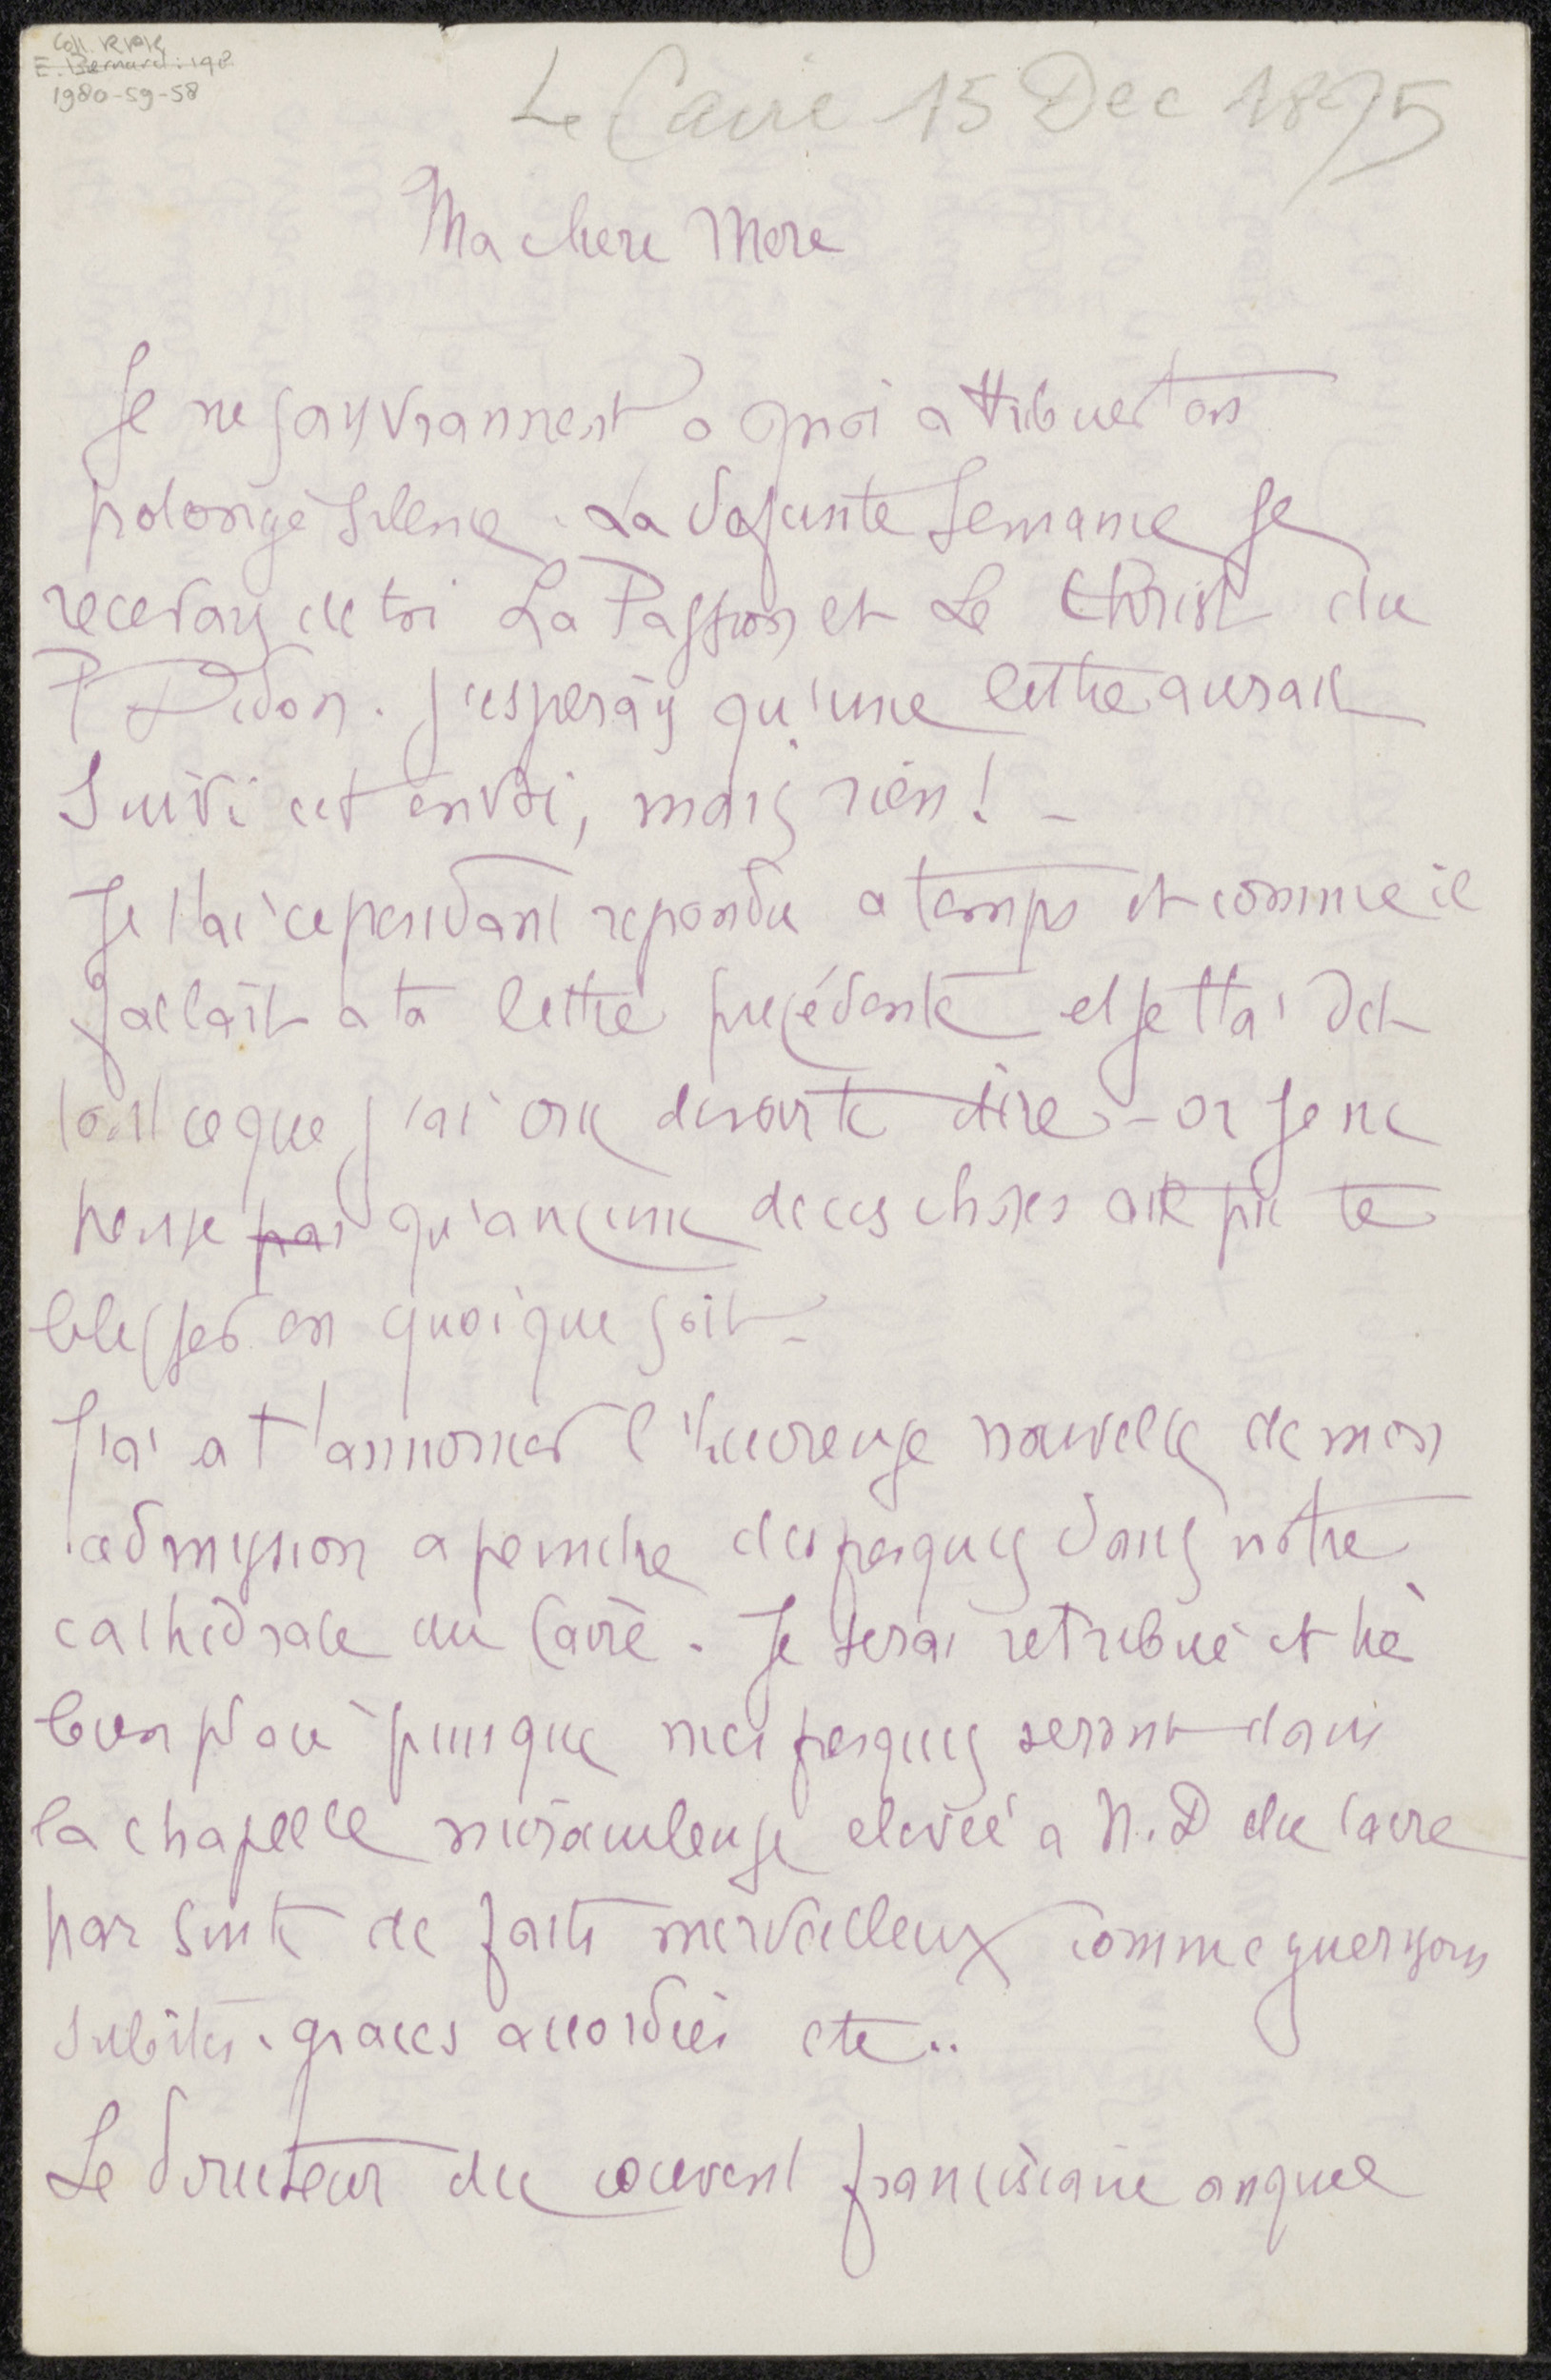 Coll. RPK
E. Bernard: 198
1980-59-58
Le Caire 15 Dec 1895
Ma chere Mere
Je ne says vraiment a quoi attribuer ton
prolongé silence. La dessunte semaine je
recevays de toi La Passion et Le Christ du
P Didon. j'esperays qu'une lettre aurait
suivi cet envoi, mais rien! -
Je t'ai cependant repondu a temps et comme il
fallait a ta lettre precédente et je t'ai dit
tout ce que j'ai cru devoir te dire - or je ne
pense pas qu'aucune de ces choses ait pu te
blesser en quoi que soit -
J'ai a t'annoncer l'heureuse nouvelle de mon
admission a peindre des fresques dans notre
cathédrale du Caire. Je serai retribué et trè
bien placé puisque mes fresques seront dans
la chapelle miraculeuse elevée a N.D du Caire
par suite de faits merveilleux comme guerisons
subites. graces accordées etc..
Le directeur du couvent franciscain auquel